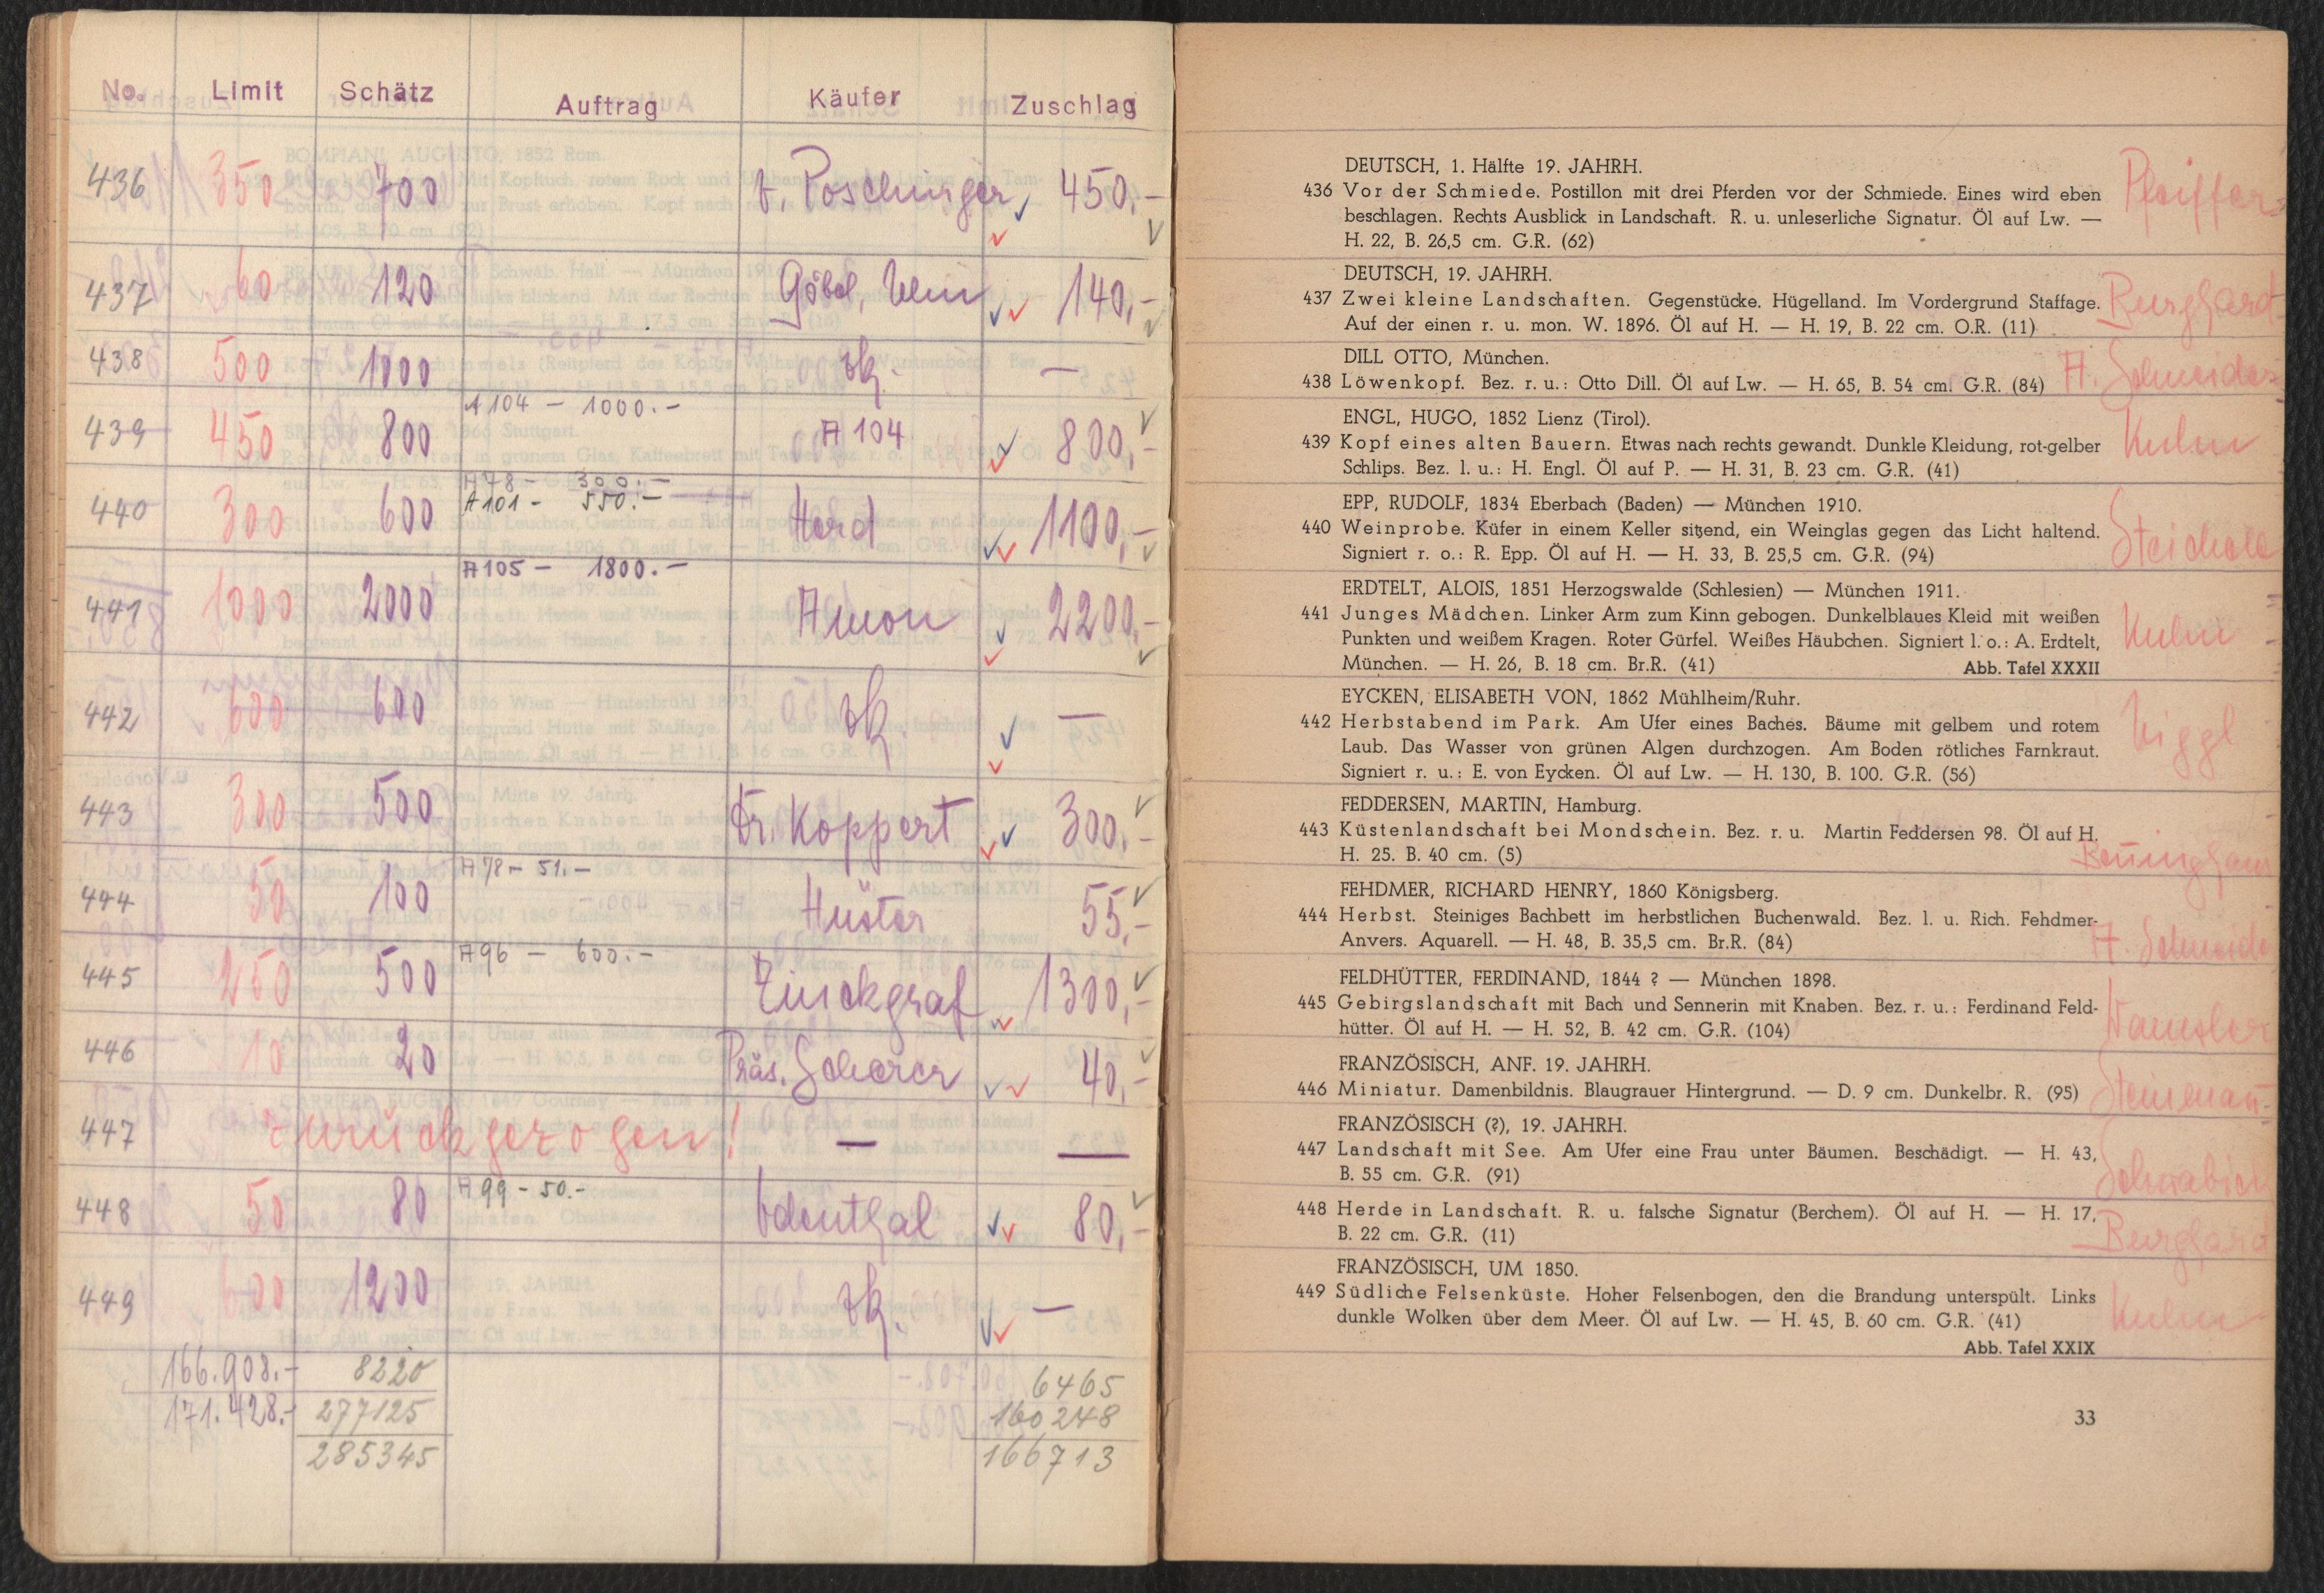 No. Limit Schätz Auftrag Käufer Zuschlag
436 350 700 v. Poschinger 450,-
437 60 120 Göbel, Ulm 140,-
438 500 1000 zk. —
439 450 800 A 104 - 1000.- A 104 800,-
440 300 600 A 78 - 300.- Hord 1100,-
A 101 - 550.-
441 1000 2000 A 105 - 1800.- Amon 2200,-
442 600 600 zk. —
443 300 500 Dr. Koppert 300,-
444 50 100 A 78 - 51.- Hüster 55,-
445 250 500 A 96 - 600.- Zinckgraf 1300,-
446 10 20 Präs. Scherer 40,-
447 zurückgezogen! — —
448 50 80 A 99 - 50.- Odenthal 80,-
449 600 1200 zk. —
166.908.- 8220 6465
171.428.- 277125 160248
285345 166713
DEUTSCH, 1. Hälfte 19. JAHRH.
436 Vor der Schmiede. Postillon mit drei Pferden vor der Schmiede. Eines wird eben Pfeiffer
beschlagen. Rechts Ausblick in Landschaft. R. u. unleserliche Signatur. Öl auf Lw. —
H. 22, B. 26,5 cm. G.R. (62)
DEUTSCH, 19. JAHRH.
437 Zwei kleine Landschaften. Gegenstücke. Hügelland. Im Vordergrund Staffage. Burghard
Auf der einen r. u. mon. W. 1896. Öl auf H. — H. 19, B. 22 cm. O.R. (11)
DILL OTTO, München.
438 Löwenkopf. Bez. r. u.: Otto Dill. Öl auf Lw. — H. 65, B. 54 cm. G.R. (84) A. Schneider
ENGL, HUGO, 1852 Lienz (Tirol).
439 Kopf eines alten Bauern. Etwas nach rechts gewandt. Dunkle Kleidung, rot-gelber Kuhn
Schlips. Bez. l. u.: H. Engl. Öl auf P. — H. 31, B. 23 cm. G.R. (41)
EPP, RUDOLF, 1834 Eberbach (Baden) — München 1910.
440 Weinprobe. Küfer in einem Keller sitzend, ein Weinglas gegen das Licht haltend.
Signiert r. o.: R. Epp. Öl auf H. — H. 33, B. 25,5 cm. G.R. (94)
ERDTELT, ALOIS, 1851 Herzogswalde (Schlesien) — München 1911.
441 Junges Mädchen. Linker Arm zum Kinn gebogen. Dunkelblaues Kleid mit weißen Kuhn
Punkten und weißem Kragen. Roter Gürfel. Weißes Häubchen. Signiert l. o.: A. Erdtelt,
München. — H. 26, B. 18 cm. Br.R. (41) Abb. Tafel XXXII
EYCKEN, ELISABETH VON, 1862 Mühlheim/Ruhr.
442 Herbstabend im Park. Am Ufer eines Baches. Bäume mit gelbem und rotem
Laub. Das Wasser von grünen Algen durchzogen. Am Boden rötliches Farnkraut.
Signiert r. u.: E. von Eycken. Öl auf Lw. — H. 130, B. 100. G.R. (56)
FEDDERSEN, MARTIN, Hamburg.
443 Küstenlandschaft bei Mondschein. Bez. r. u. Martin Feddersen 98. Öl auf H.
H. 25. B. 40 cm. (5)
FEHDMER, RICHARD HENRY, 1860 Königsberg.
444 Herbst. Steiniges Bachbett im herbstlichen Buchenwald. Bez. l. u. Rich. Fehdmer-
Anvers. Aquarell. — H. 48, B. 35,5 cm. Br.R. (84) A. Schneide
FELDHÜTTER, FERDINAND, 1844 ? — München 1898.
445 Gebirgslandschaft mit Bach und Sennerin mit Knaben. Bez. r. u.: Ferdinand Feld-
hütter. Öl auf H. — H. 52, B. 42 cm. G.R. (104)
FRANZÖSISCH, ANF. 19. JAHRH.
446 Miniatur. Damenbildnis. Blaugrauer Hintergrund. — D. 9 cm. Dunkelbr. R. (95)
FRANZÖSISCH (?), 19. JAHRH.
447 Landschaft mit See. Am Ufer eine Frau unter Bäumen. Beschädigt. — H. 43,
B. 55 cm. G.R. (91)
448 Herde in Landschaft. R. u. falsche Signatur (Berchem). Öl auf H. — H. 17,
B. 22 cm. G.R. (11) Burghard
FRANZÖSISCH, UM 1850.
449 Südliche Felsenküste. Hoher Felsenbogen, den die Brandung unterspült. Links Kuhn
dunkle Wolken über dem Meer. Öl auf Lw. — H. 45, B. 60 cm. G.R. (41)
Abb. Tafel XXIX
33